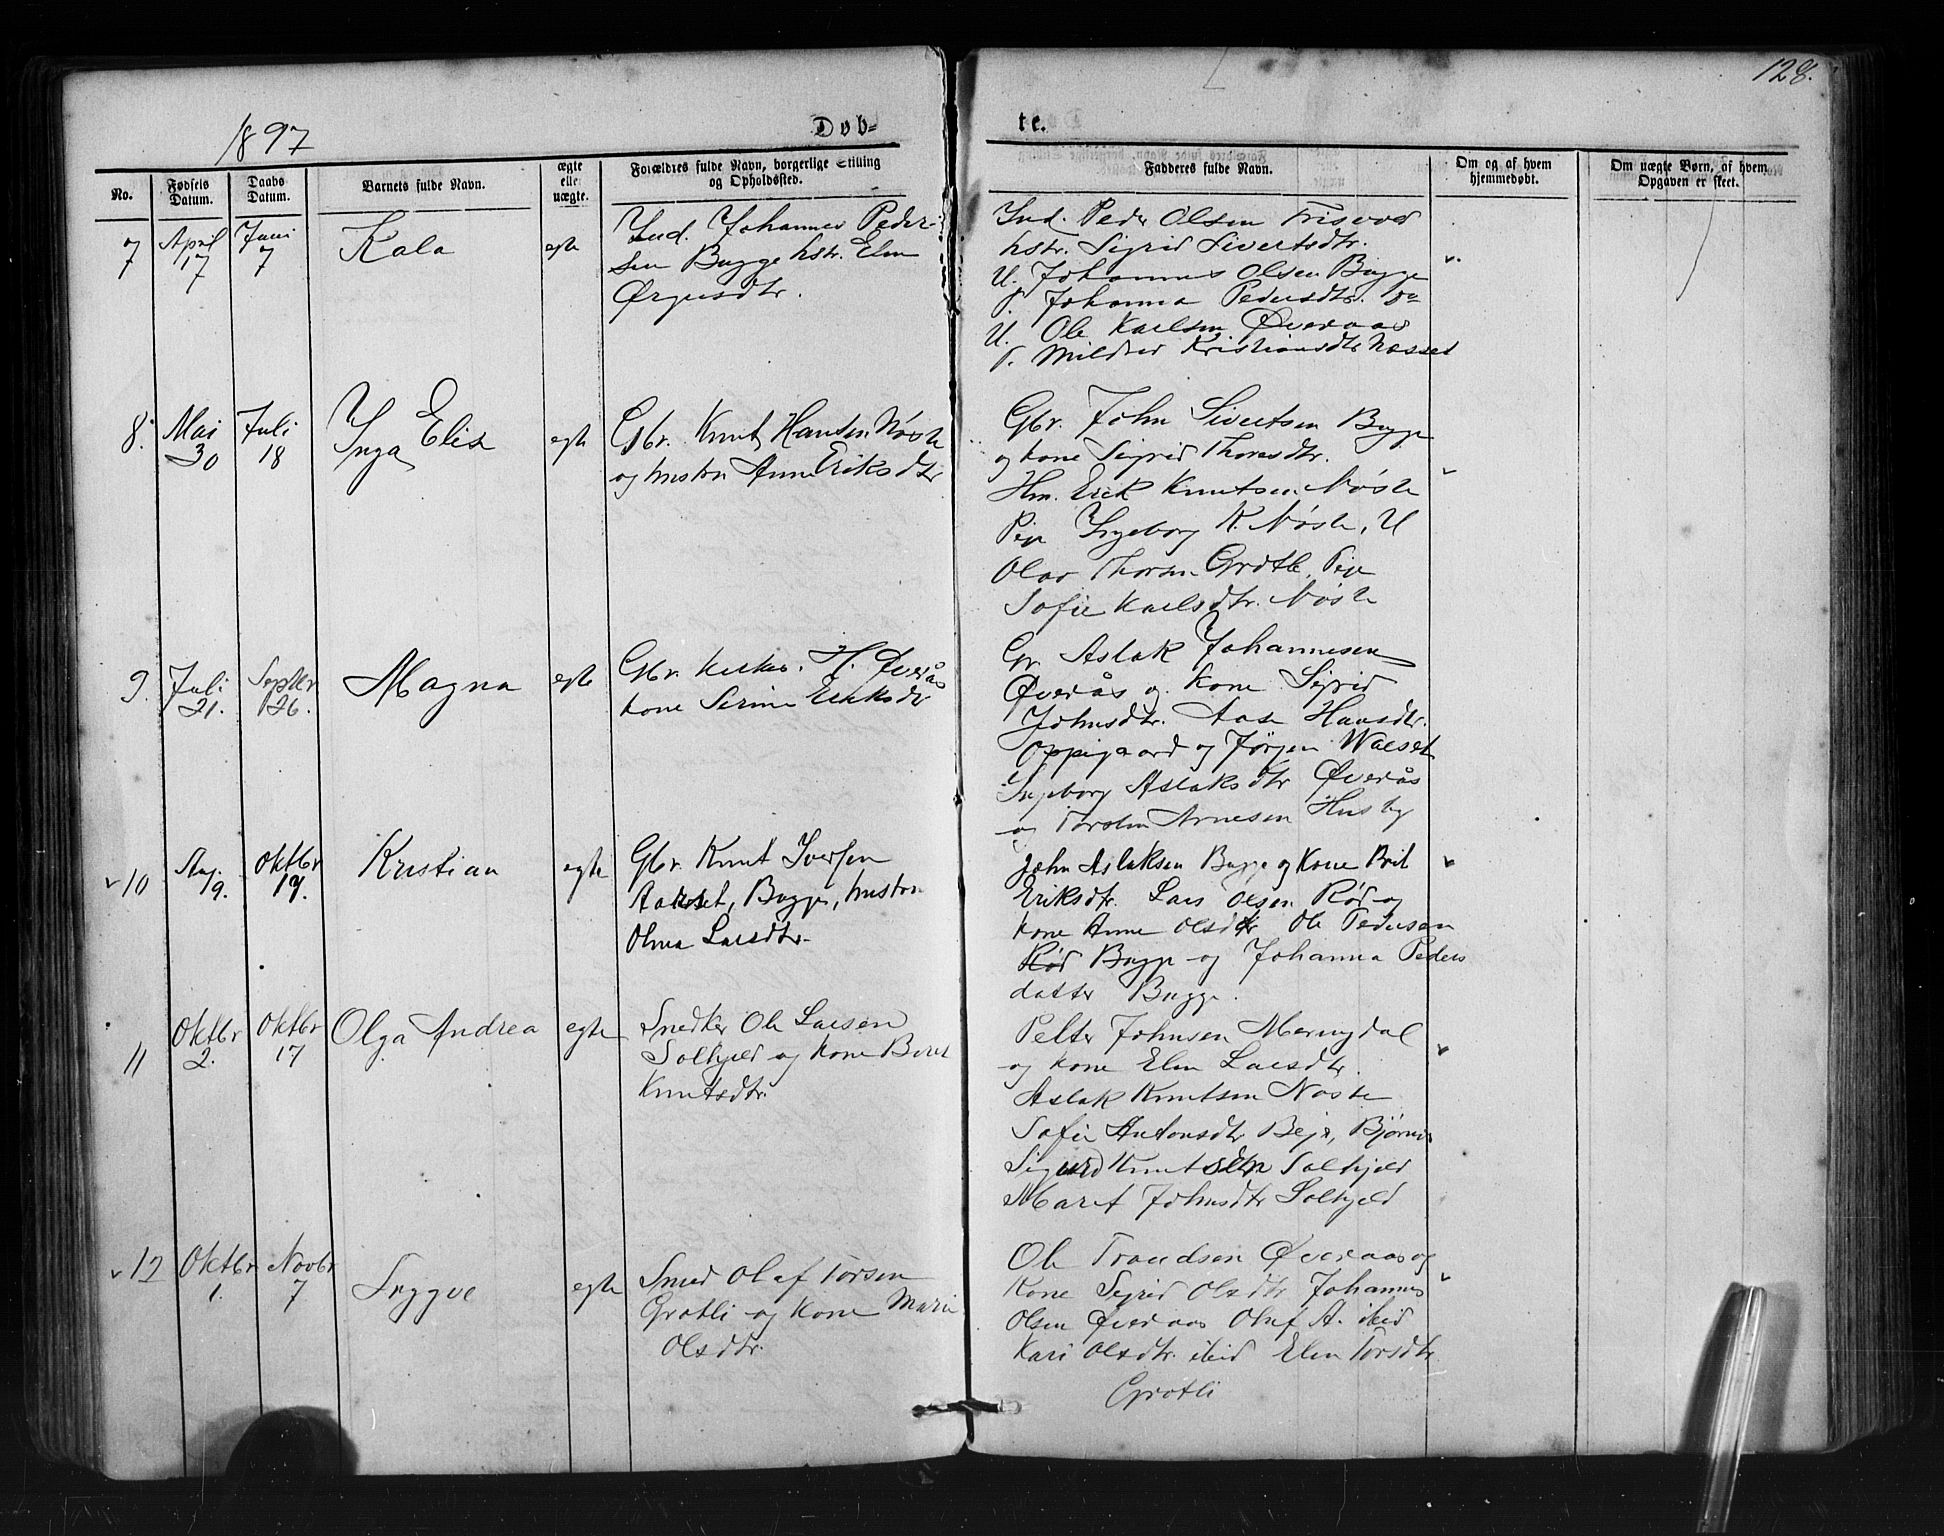 128.
1897
Døb=
te.
No.
Fødsels Datum.
Daabs Datum.
Barnets fulde Navn.
ægte elle uægte.
Forældres fulde Navn, borgerlige Stilling og Opholdssted.
Fadderes fulde Navn.
Om og af hvem hjemmedøbt.
Om uægte Børn, af hvem Opgaven er skeet.
7
April 17
Juni 7
Kala
egte
Ind. Johannes Peder-
sen Bugge hstr. Elen
Ørjesdtr.
Ind. Peder Olsen Trisvoe
hstr. Sigrid Sivertsdtr.
U. Johannes Olsen Bugge
P. Johanna Pedersdtr. do
U. Ole Karlsen Øveraas
P. Mildrid Kristiansdtr Næsset
8.
Mai 30
Juli 18
Inga Elise
egte
Gbr. Knut Hansen Nøste
og hustru Anne Eriksdtr
Gbr. John Sivertsen Bugge
og kone Sigrid Thoresdtr.
Hm. Erik Knutsen Nøste
Pige Ingeborg K. Nøste, U
Olav Thorsen Grotle, Pige
Sofie Karlsdtr. Nøste
9.
Juli 21.
Septbr 26.
Magna
egte
Gbr. H. Øverås
kone Serine Eriksdtr
Gr Aslak Johannesen
Øverås og kone Sigrid
Johnsdtr. Aase Hansdtr.
Oppigaard og Jørgen
Ingeborg Aslaksdtr Øverås
og Torsten Arnesen Husby
10
Aug. 19.
Oktbr 17.
Kristian
egte
Gbr. Knut Iversen
Bugge, hustru
Olina Larsdtr.
John Aslaksen Bugge og Kone Brit
Eriksdtr. Lars Olsen Rød og
kone Anne Olsdtr Ole Pedersen
Rød Bugge og Johanna Peders
datter Bugge.
11
Oktbr 2.
Oktbr 17
Olga Andrea
egte
Snedker Ole Larsen
Solhjeld og kone Beret
Knutsdtr.
Petter Johnsen Meringdal
og kone Elen Larsdtr.
Aslak Knutsen Nøste
Sofie Antonsdtr
Sigurd Knutsen Solhjeld
Maret Johnsdtr Solhjeld
12
Oktbr 1.
Novbr 7
Tryggve
egte
Smed Olaf Torsen
Grotli og kone Marie
Olsdtr.
Ole Trondsen Øveraas og
Kone Sigrid Olsdtr Johannes
Olsen Øveraas Oluf A. ibid
Kari Olsdtr. ibid Elen Torsdtr
Grotli